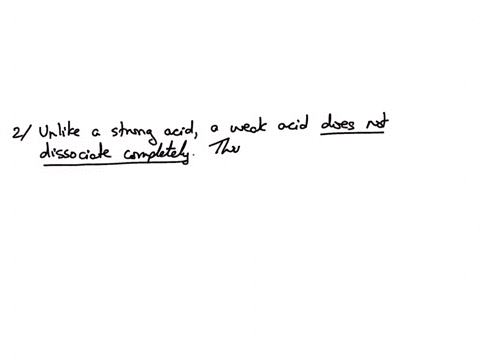 2/ Unlike a strong acid, a weak acid does not
dissociate completely. Thu